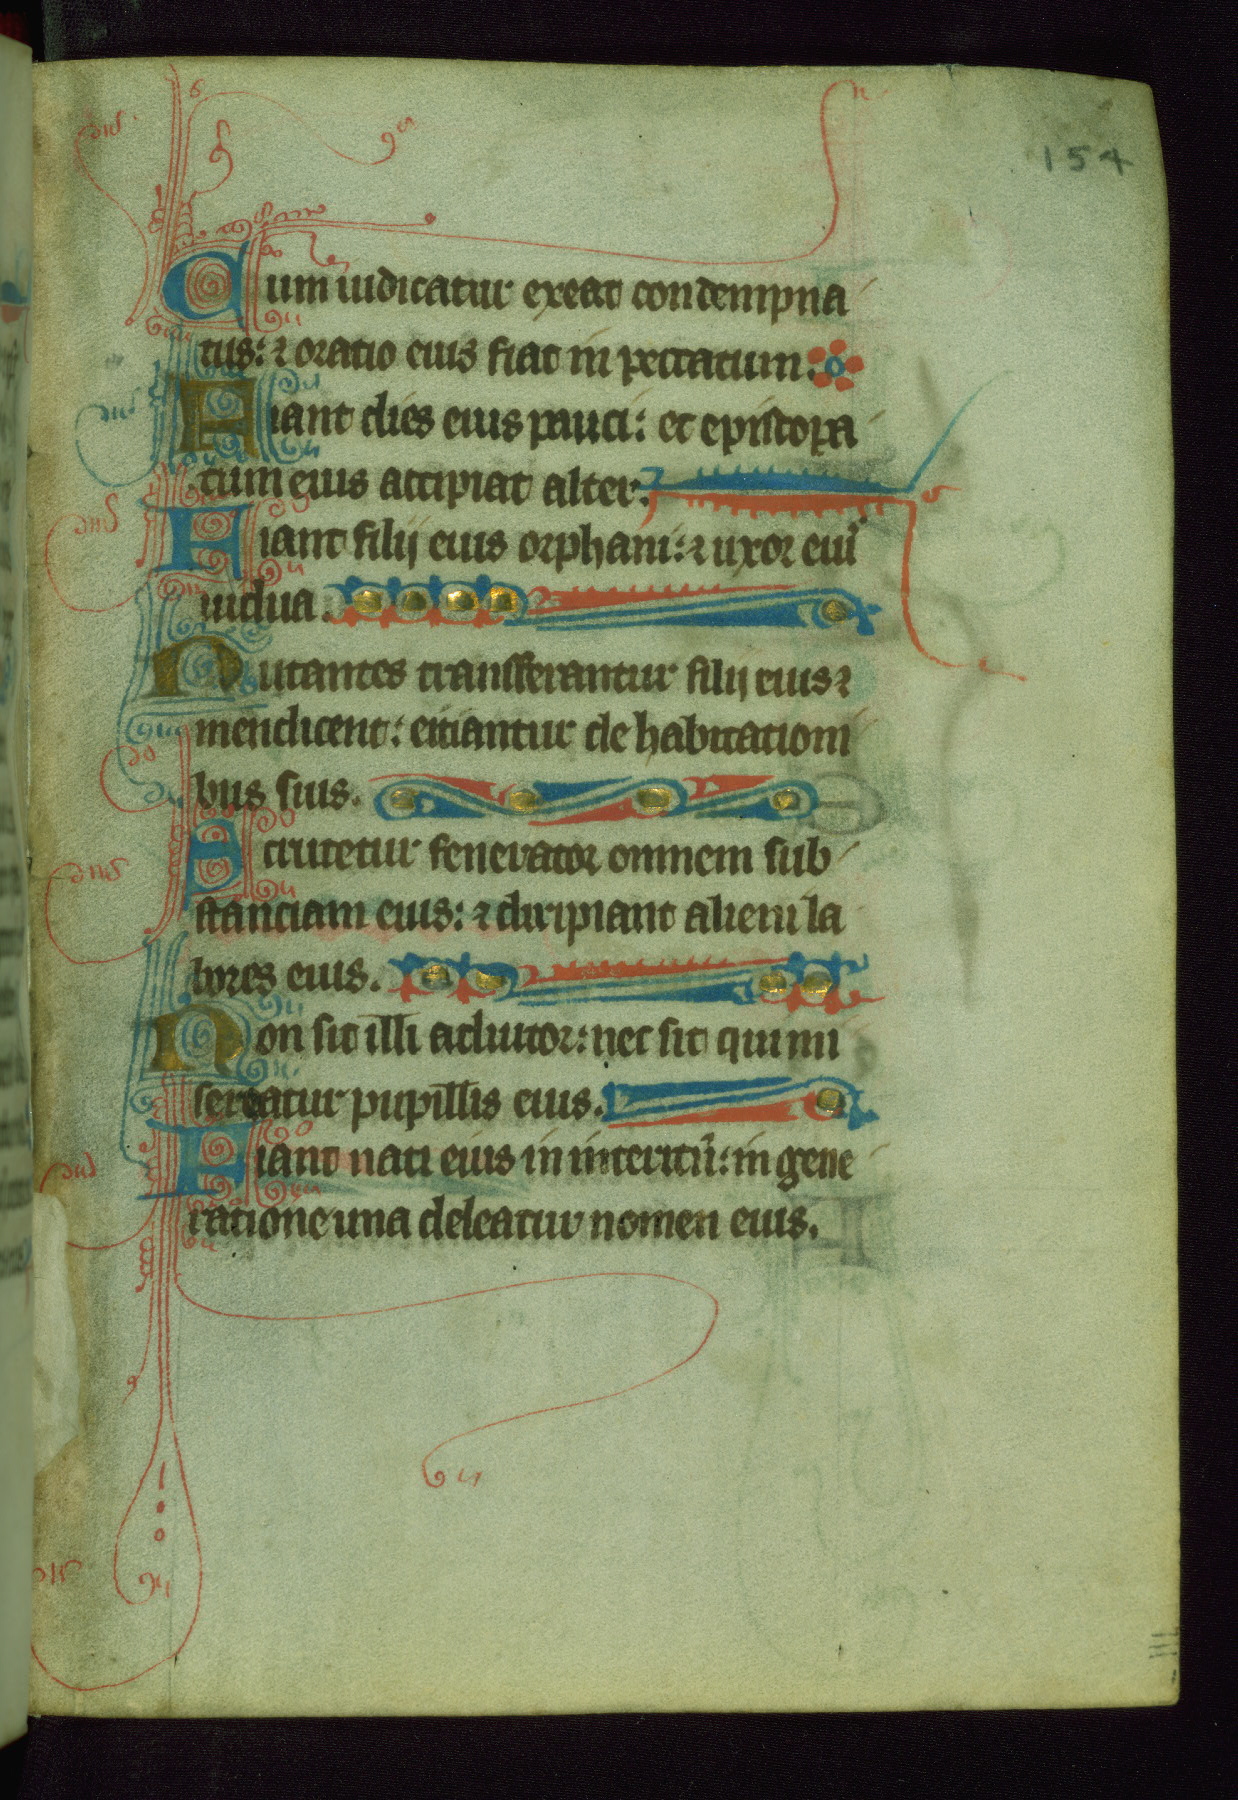 154
Cum iudicatur exeat condempna
tus: ⁊ oratio eius fiat in peccatum:
Fiant dies eius pauci: et episcopa
tum eius accipiat alter.
Fiant filij eius orphani: ⁊ uxor eiuˢ
uidua.
Nutantes transferantur filij eius ⁊
mendicent: eiciantur de habitationi
bus suis.
Scrutetur fenerator omnem sub
stanciam eius: ⁊ diripiant alieni la
bores eius.
Non sit illi adiutor: nec sit qui mi
sereatur pupillis eius.
Fiant nati eius in interitū: in gene
ratione una deleatur nomen eius.